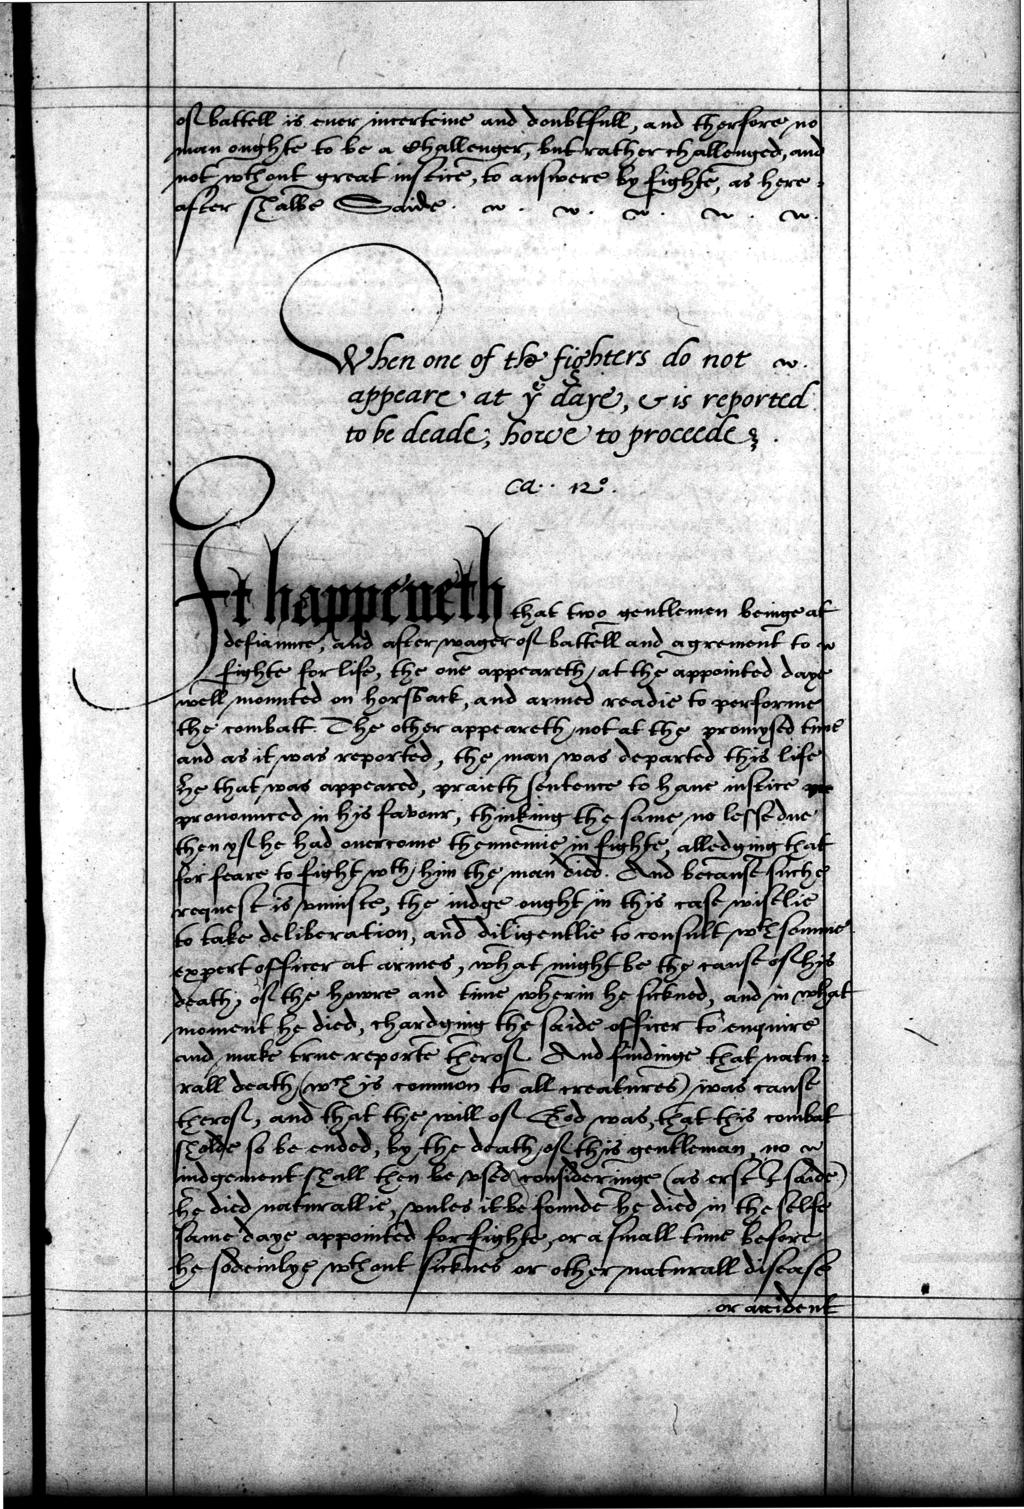 of battell is ever incerteine and doubtfull, and therfore no
man oughte to be a Challenger, but rather challenged, and
not wthout great iustice, to answere by fighte, as here=
after shalbe Saide.
When one of the fighters do not
appeare at ye daye, & is reported
to be deade; howe to proceede.
Ca.. 12o.
It happeneth that two gentlemen beinge at
defiannce, and after wager of battell and agrement to
fighte for life, the one appeareth at the appointed daye
well mounted on horsback, and armed readie to performe
the combatt. The other appeareth not at the promysed time
and as it was reported, the man was departed this life
he that was appeared, praieth sentence to haue iustice
pronounced in his favour, thinking the same no lesse due
then yf he had overcome thennemie in fighte, alledging that
for feare to fight wth him the man died. And because suche
request is vniuste, the iudge ought in this case wiselie
to take deliberation, and diligentlie to consult wth somme
expert officer at armes, what might be the cause of his
death, of the howre and time wherin he sickned, and in what
moment he died, chardging the saide officer to enquire
and make true reporte therof. And findinge that natu=
rall death (wch is common to all creatures) was cause
therof, and that the will of God was, that this combat
sholde so be ended, by the death of this gentleman, no
iudgement shall then be vsed consideringe (as erst I saide)
he died naturallie, vnles it be founde he died in the selfe
same daye appointed for fighte, or a small time before
he sodeinlye wthout sicknes or other naturall disease
or accident